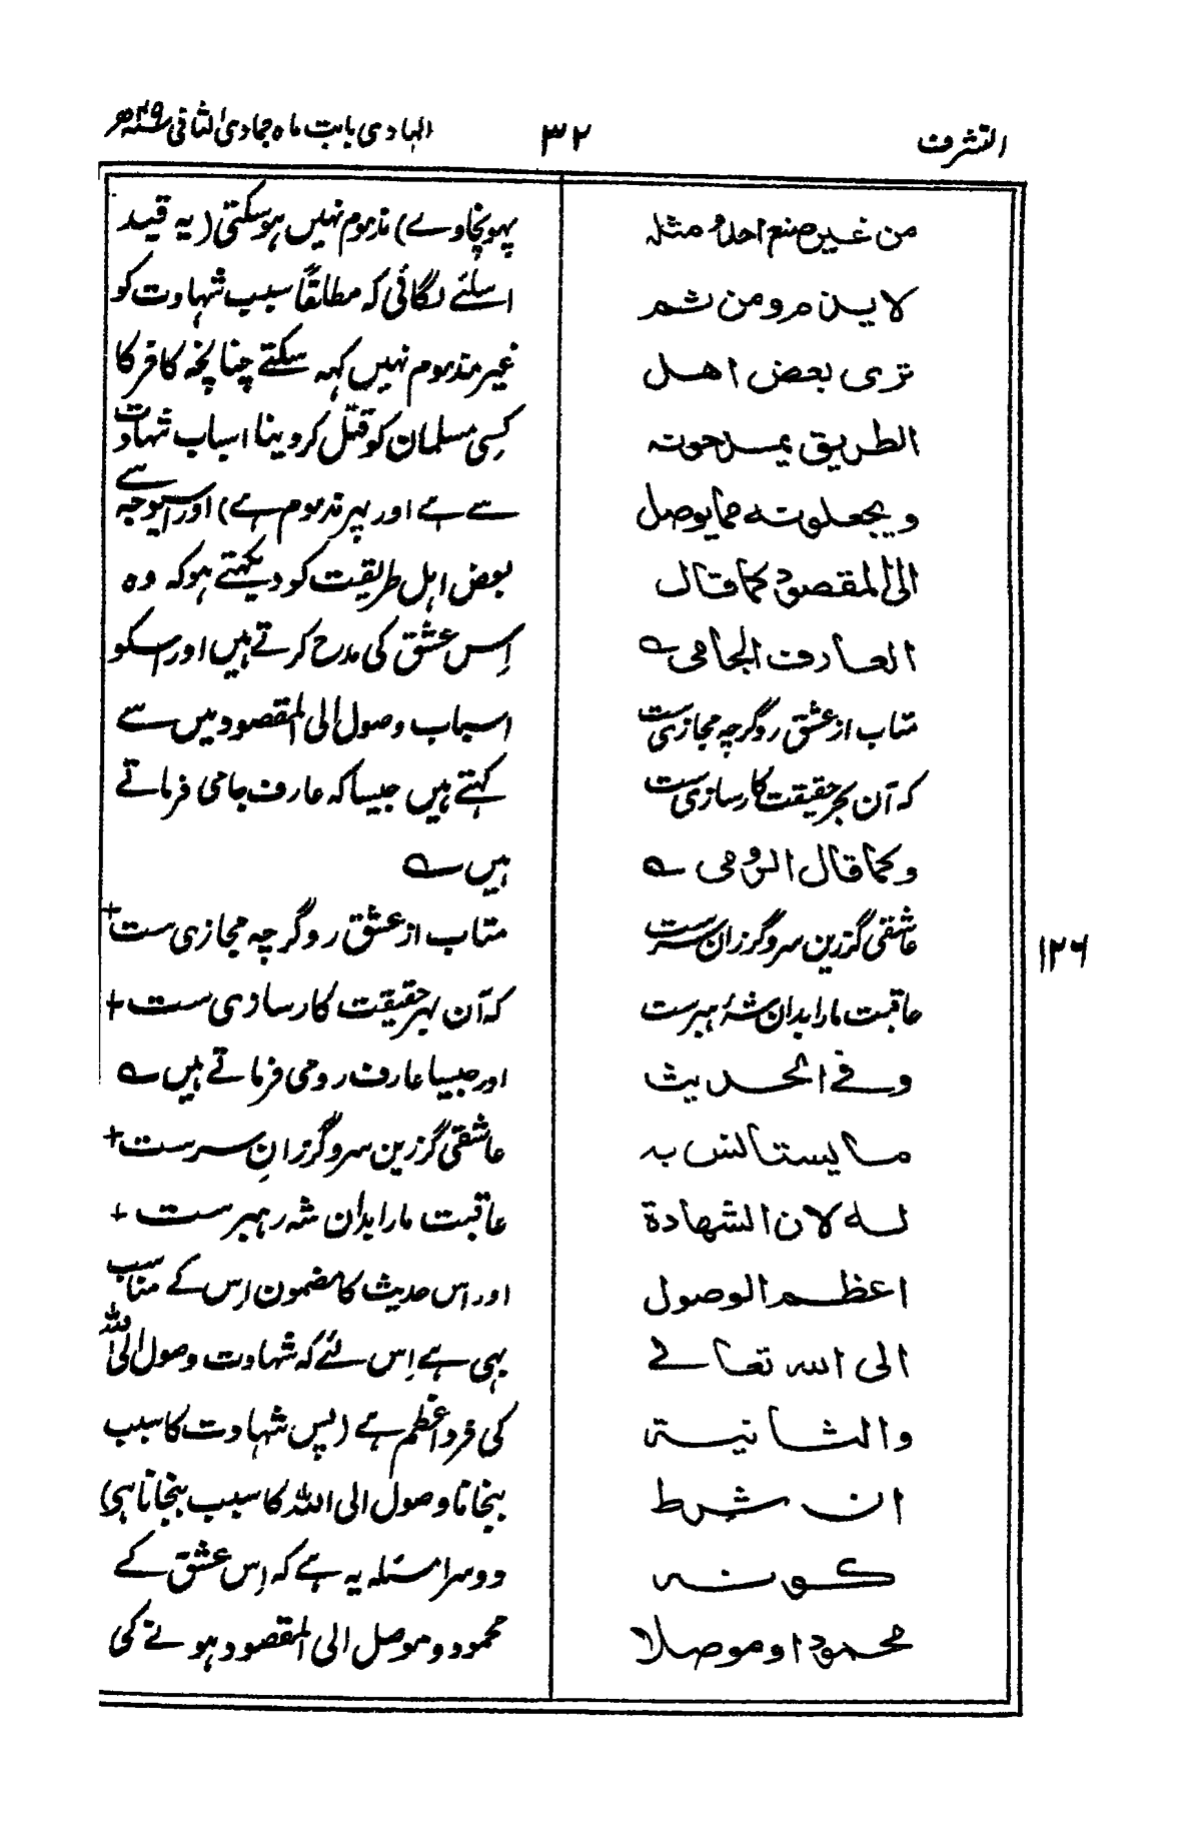 التشرف
۳۲
الہادی بابت ماہ جمادی الثانی ۴۹ھ
من غير صنع احد و مثله
لا يذم ومن ثم
ترى بعض اهل
الطريق يمدحونه
ويجعلونه مما يوصل
الى المقصود كما قال
العارف الجامي ے
متاب از عشق رو گرچہ مجازی ست
کہ آن بہر حقیقت کارسازی ست
وكما قال الرومي ے
عاشقی گزرین سرو گرزان سرست
عاقبت ما را بدان شہ رہبرست
وفي الحديث
ما يستانس به
له لان الشهادة
اعظم الوصول
الى الله تعالى
والثانية
ان شرط
كونه
محمودا وموصلا
۱۲۶
پہونچاوے) مذموم نہیں ہوسکتی (یہ قید
اسلئے لگائی کہ مطلقاً سبب شہادت کو
غیر مذموم نہیں کہہ سکتے چنانچہ کافر کا
کسی مسلمان کو قتل کردینا اسباب شہادت
سے ہے اور پھر مذموم ہے) اور اسیوجہ سے
بعض اہل طریقت کو دیکھتے ہو کہ وہ
اِس عشق کی مدح کرتے ہیں اور اسکو
اسباب وصول الی المقصود میں سے
کہتے ہیں جیسا کہ عارف جامی فرماتے
ہیں ے
متاب از عشق رو گرچہ مجازی ست +
کہ آن بہر حقیقت کارسازی ست +
اور جیسا عارف رومی فرماتے ہیں ے
عاشقی گزرین سرو گرزانِ سرست +
عاقبت ما را بدان شہ رہبرست +
اور اس حدیث کا مضمون اِس کے مناسب
بہی ہے اِس لئے کہ شہادت وصول الی اللہ
کی فرد اعظم ہے (پس شہادت کا سبب
بنجانا وصول الی اللہ کا سبب بنجانا ہی)
دوسرا مسئلہ یہ ہے کہ اِس عشق کے
محمود و موصل الی المقصود ہونے کی